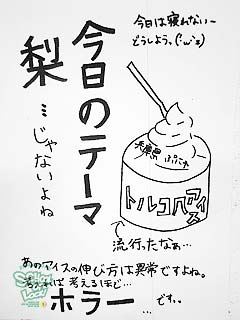 今日は寝れないー
どうしよう。(´;ω;`)
今日のテーマ
梨
…じゃないよね
兵庫県
トルコ風アイス
流行ったなぁ…
あのアイスの伸び方は異常ですよね。
考えれば考えるほど…
ホラー…です。